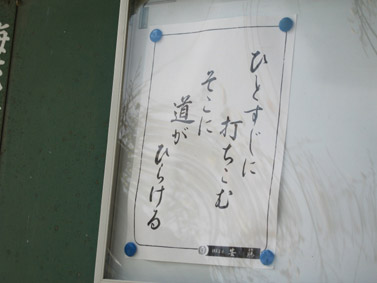 ひとすじに
打ちこむ
そこに
道が
ひらける